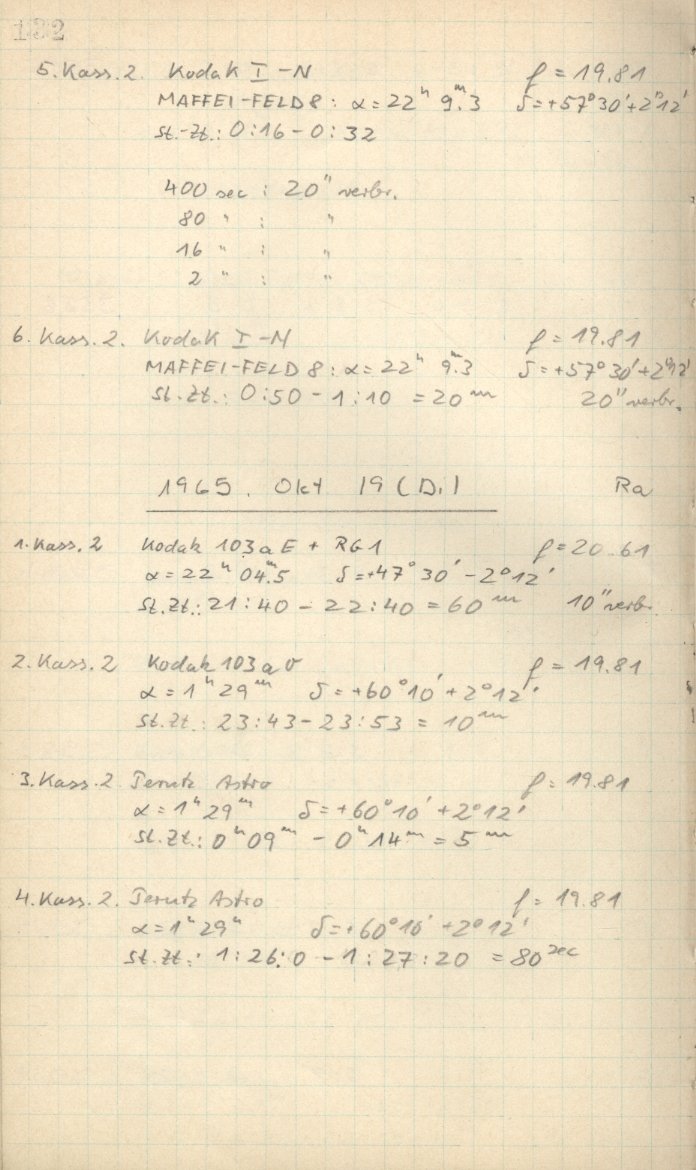 132
5. Kass. 2. Kodak I-N f = 19.81
MAFFEI-FELD 8: α = 22ʰ 9ᵐ.3 δ = +57°30' + 2°12'
St.-Zt.: 0:16 - 0:32
400 sec : 20" verbr.
80 " : "
16 " : "
2 " : "
6. Kass. 2. Kodak I-N f = 19.81
MAFFEI-FELD 8: α = 22ʰ 9ᵐ.3 δ = +57°30' + 2°12'
St.Zt.: 0:50 - 1:10 = 20ᵐ 20" verbr.
1965. Okt 19 (Di) Ra
1. Kass. 2 Kodak 103aE + RG1 f = 20.61
α = 22ʰ 04ᵐ.5 δ = +47°30' - 2°12'
St.Zt.: 21:40 - 22:40 = 60ᵐ 10" verbr.
2. Kass. 2 Kodak 103aO f = 19.81
α = 1ʰ 29ᵐ δ = +60°10' + 2°12'
St.Zt.: 23:43 - 23:53 = 10ᵐ
3. Kass. 2 Perutz Astro f = 19.81
α = 1ʰ 29ᵐ δ = +60°10' + 2°12'
St.Zt.: 0ʰ09ᵐ - 0ʰ14ᵐ = 5ᵐ
4. Kass. 2. Perutz Astro f = 19.81
α = 1ʰ 29ᵐ δ = +60°10' + 2°12'
St.Zt.: 1:26:0 - 1:27:20 = 80ˢᵉᶜ